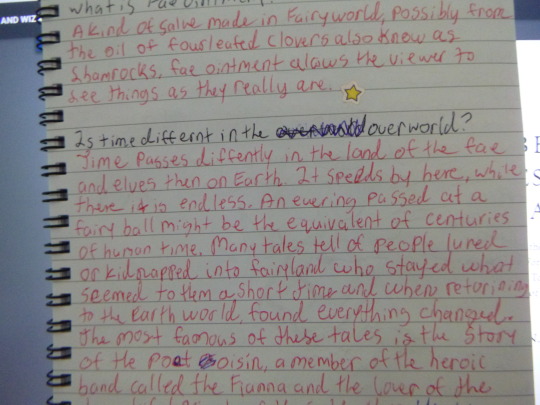 AND WIZ
what is Fae Ointment?
A kind of salve made in Fairyworld, possibly from
the oil of fourleafed clovers also know as
shamrocks, fae ointment alows the viewer to
see things as they really are.
Is time differnt in the overworld?
Time passes diffently in the land of the fae
and elves then on Earth. It speeds by here, while
there it is endless. An evering passed at a
fairy ball might be the equivalent of centuries
of human time. Many tales tell of people lured
or kidnapped into fairyland who stayed what
seemed to them a short time and when retorining
to the Earth world, found everything changed.
The most famous of these tales is the story
of the Poet Oisin, a member of the heroic
band called the Fianna and the lover of the